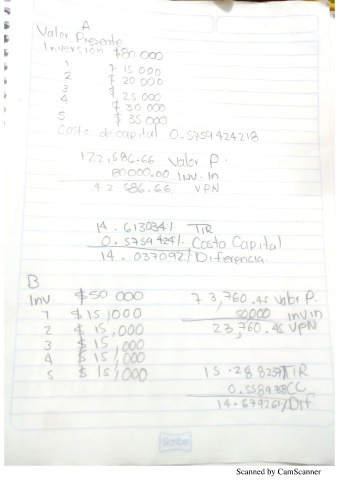 A
Valor Presente
Inversion $80 000
1 $ 15 000
2 $ 20 000
3 $ 25 000
4 $ 30 000
5 $ 35 000
Costo de capital 0.5759424218
122,586.66 Valor P.
80000.00 INV. In
42 586.66. VPN
14.613034% TIR
0.5759424% Costo Capital
14.037092% Diferencia
B
Inv. $50 000
1 $ 15,000
2 $ 15,000
3 $ 15,000
4 $ 15,000
5 $ 15,000
73,760.45 Valor P.
50,000 inv in
23,760.45 VPN
15.238239% TIR
0.558978 CC
14.679261% Dif
Scribe
Scanned by CamScanner